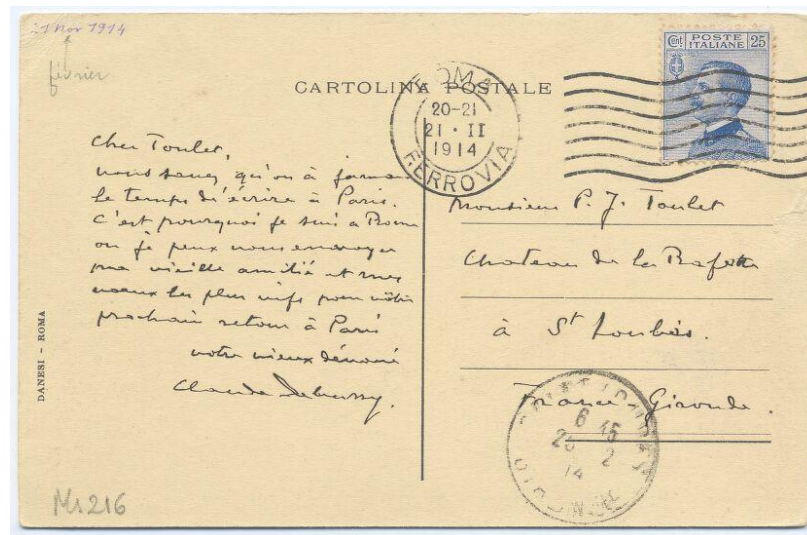 21 Nov 1914
février
CARTOLINA POSTALE
Cent. POSTE ITALIANE 25
ROMA
20-21
21·II
1914
FERROVIA
Cher Toulet,
vous savez qu'on a jamais
le temps d'écrire à Paris.
C'est pourquoi je suis à Rome
où je peux vous envoyer
ma vieille amitié et mes
voeux les plus vifs pour votre
prochain retour à Paris
votre vieux dévoué
Claude Debussy.
Monsieur P. J. Toulet
Chateau de la Rafette
à St Loubès.
France Gironde.
6 45
2
14
DANESI - ROMA
Ms 216